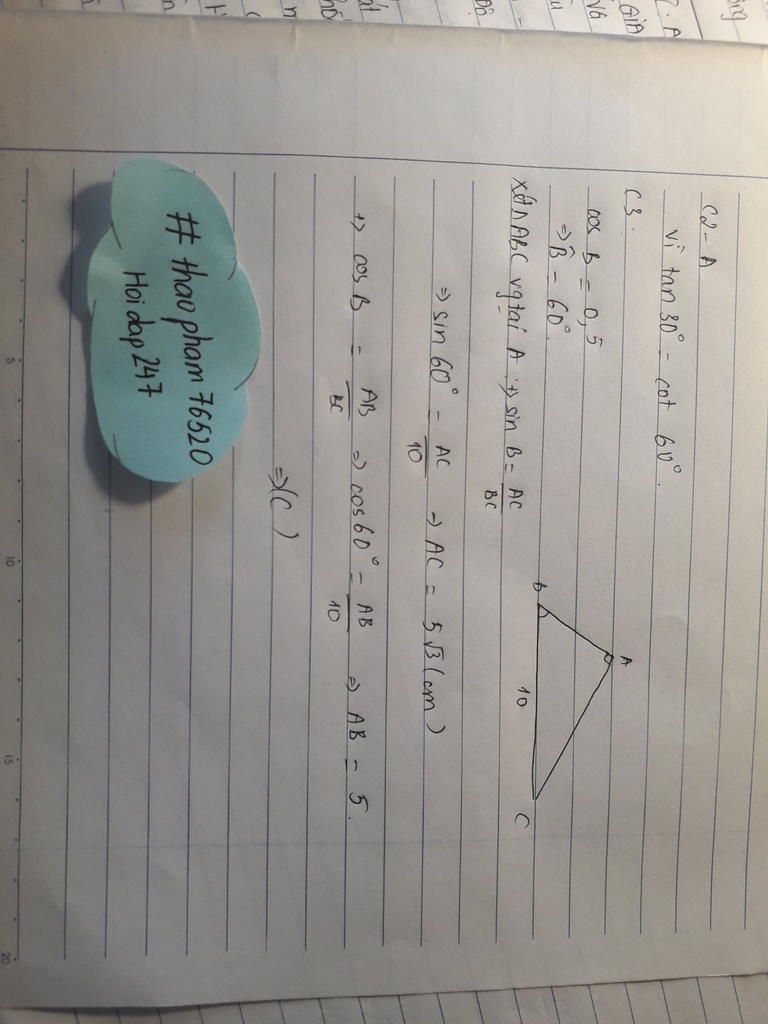 C2 - A
vì tan 30° = cot 60°.
C3:
cos B = 0,5
=> B̂ = 60°.
Xét ∆ABC vg tại A: +) sin B = AC/BC
=> sin 60° = AC/10 => AC = 5√3 (cm)
+) cos B = AB/BC => cos 60° = AB/10 => AB = 5.
=> (C)
A
B
10
C
# thaopham76520
Hoi dap 247
5
10
15
20